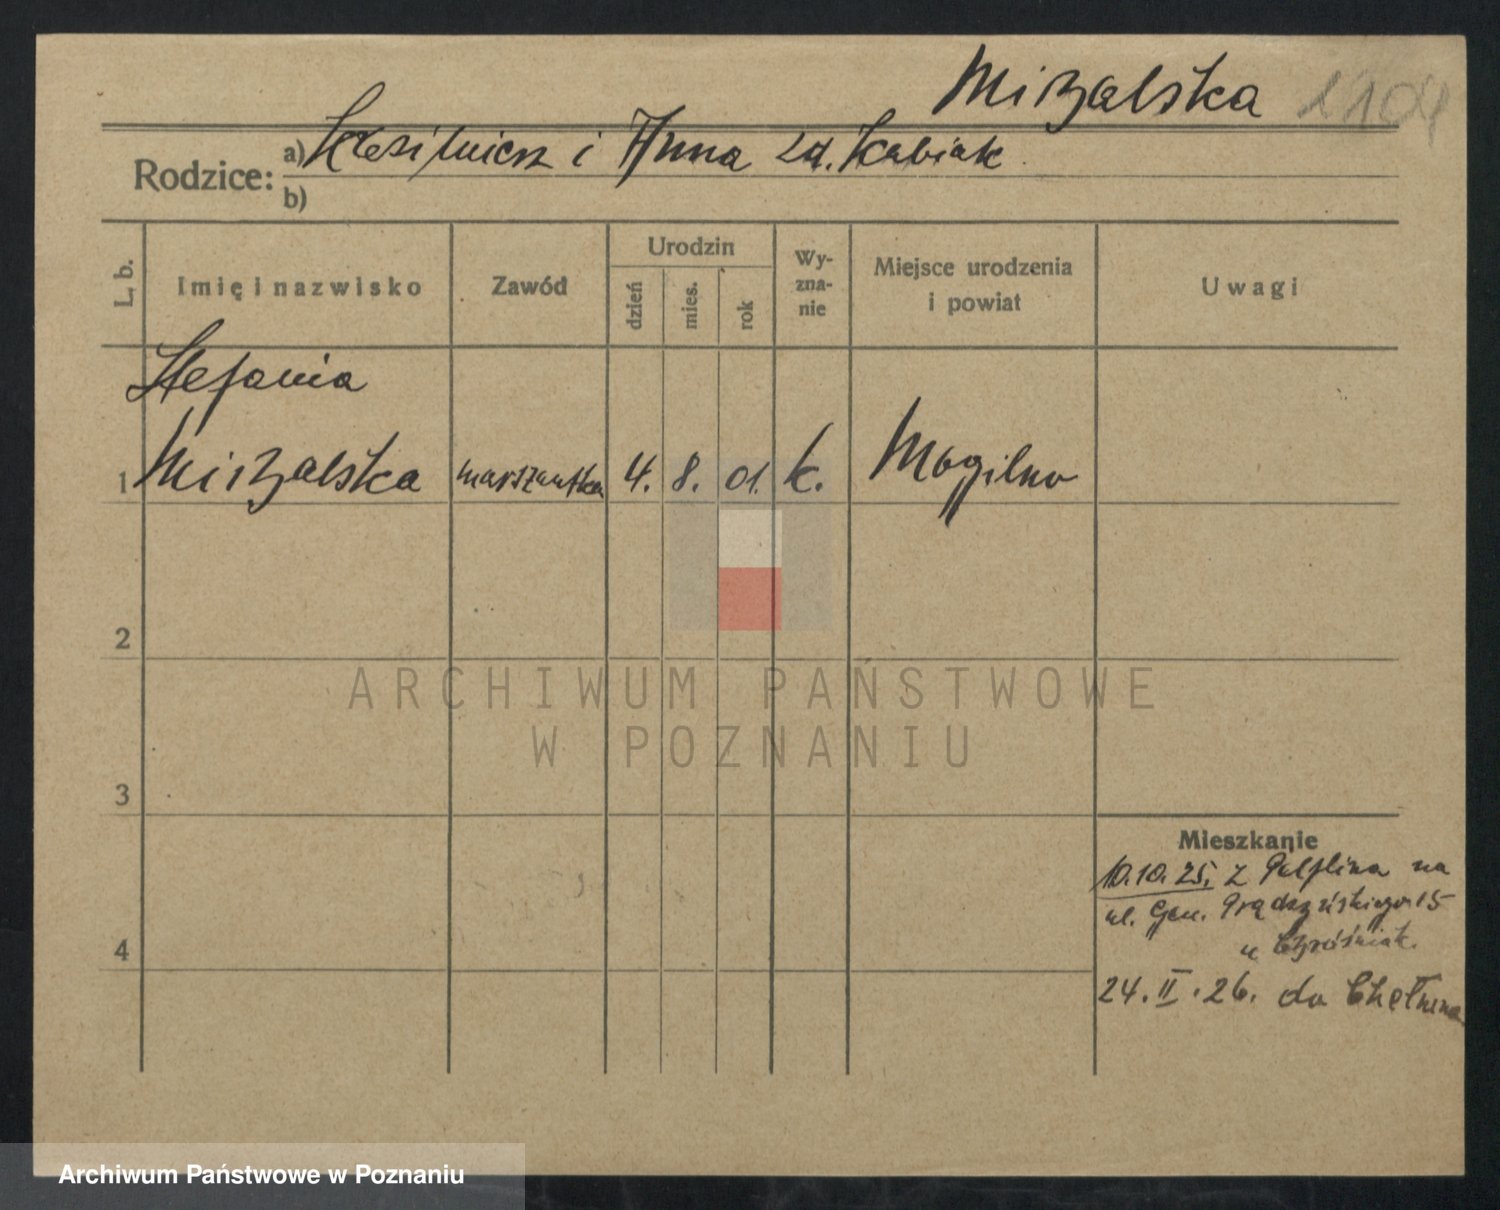 Mizgalska 2104
Rodzice: a) Kazimierz i Anna zd. Kubiak
b)
L. b. Imię i nazwisko Zawód Urodzin dzień mies. rok Wyznanie Miejsce urodzenia i powiat Uwagi
Stefania
1 Mizgalska 4. 8. 01. k. Mogilno
2
3
4
Mieszkanie
10.10.25. z Pelplina na
ul. Gen. Prądzyńskiego 15
u
24.II.26. do Chełmna
ARCHIWUM PAŃSTWOWE
W POZNANIU
Archiwum Państwowe w Poznaniu